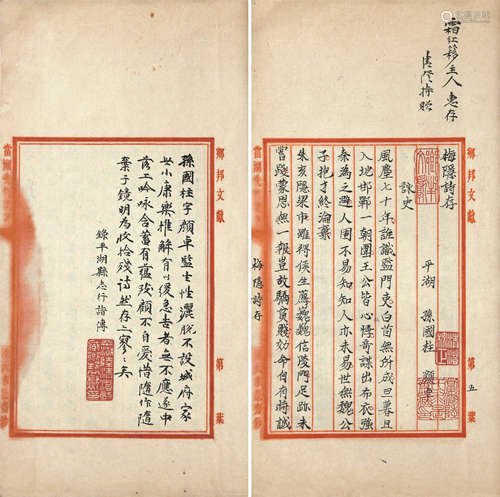 霜紅簃主人惠存
梅隱詩存
平湖 孫國柱 顏車
詠史
風塵七十年誰識監門吏白首無所成旦暮且
入地邯鄲一朝圍王公皆心悸奇謀出布衣強
秦為之避人固不易知知人亦未易世無魏公
子抱才終淪棄
朱亥隱梁市難得侯生薦巍巍信陵門足跡未
嘗踐蒙恩無一報豈故驕貧賤効命自有時誠
鄉邦文獻
第五葉
梅隱詩存
鄉邦文獻
第 葉
孫國柱字顏車監生性灑脫不設城府家
世小康樂推解有以緩急告者無不應遂中
落工吟咏含蓄有蘊殊顧不自愛惜隨作隨
棄子鏡明為收拾殘詩然存亦寥寥矣
錄平湖縣志行誼傳